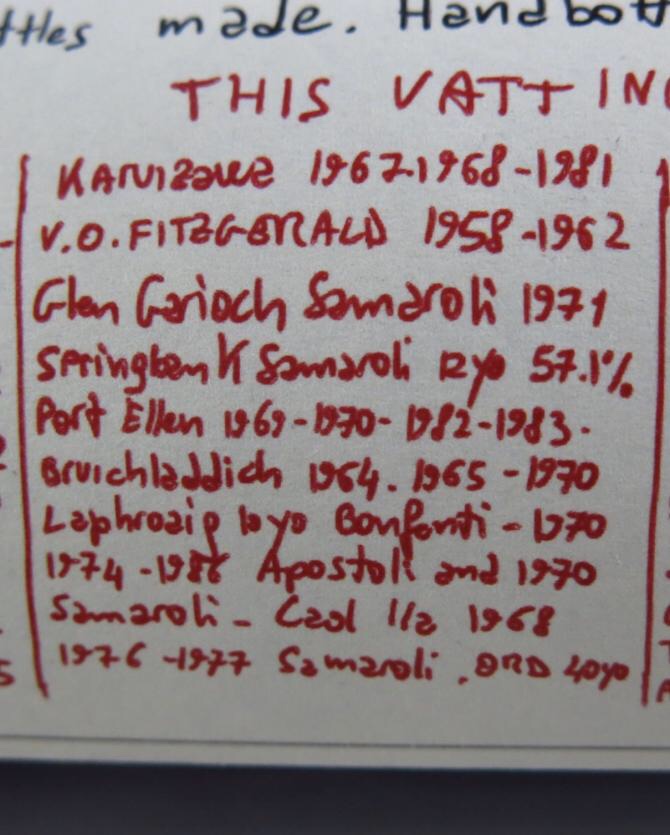 ttles made. Handbott
THIS VATTING
KARUIZAWA 1967.1968-1981
V.O. FITZGERALD 1958-1962
Glen Garioch Samaroli 1971
Springbank Samaroli 12yo 57.1%
Port Ellen 1969-1970-1982-1983.
Bruichladdich 1964. 1965-1970
Laphroaig 10yo Bonfanti - 1970
1974-1988 Apostoli and 1970
Samaroli - Caol Ila 1968
1976-1977 Samaroli. ORD 40yo